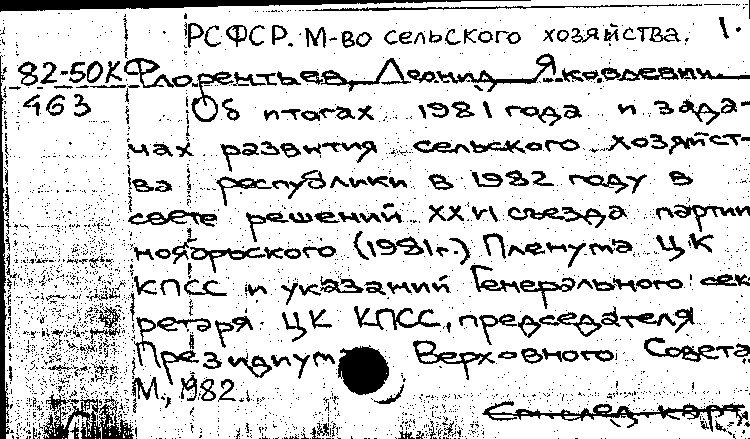 РСФСР. М-во сельского хозяйства. 1.
82-50К Флорентьев, Леонид Яковлевич.
463 Об итогах 1981 года и зада-
чах развития сельского хозяйст-
ва республики в 1982 году в
свете решений XXVI съезда партии
ноябрьского (1981г.) Пленума ЦК
КПСС и указаний Генерального сек
ретаря ЦК КПСС, председателя
Президиума Верховного Совета
М., 1982.
См. след. карт.